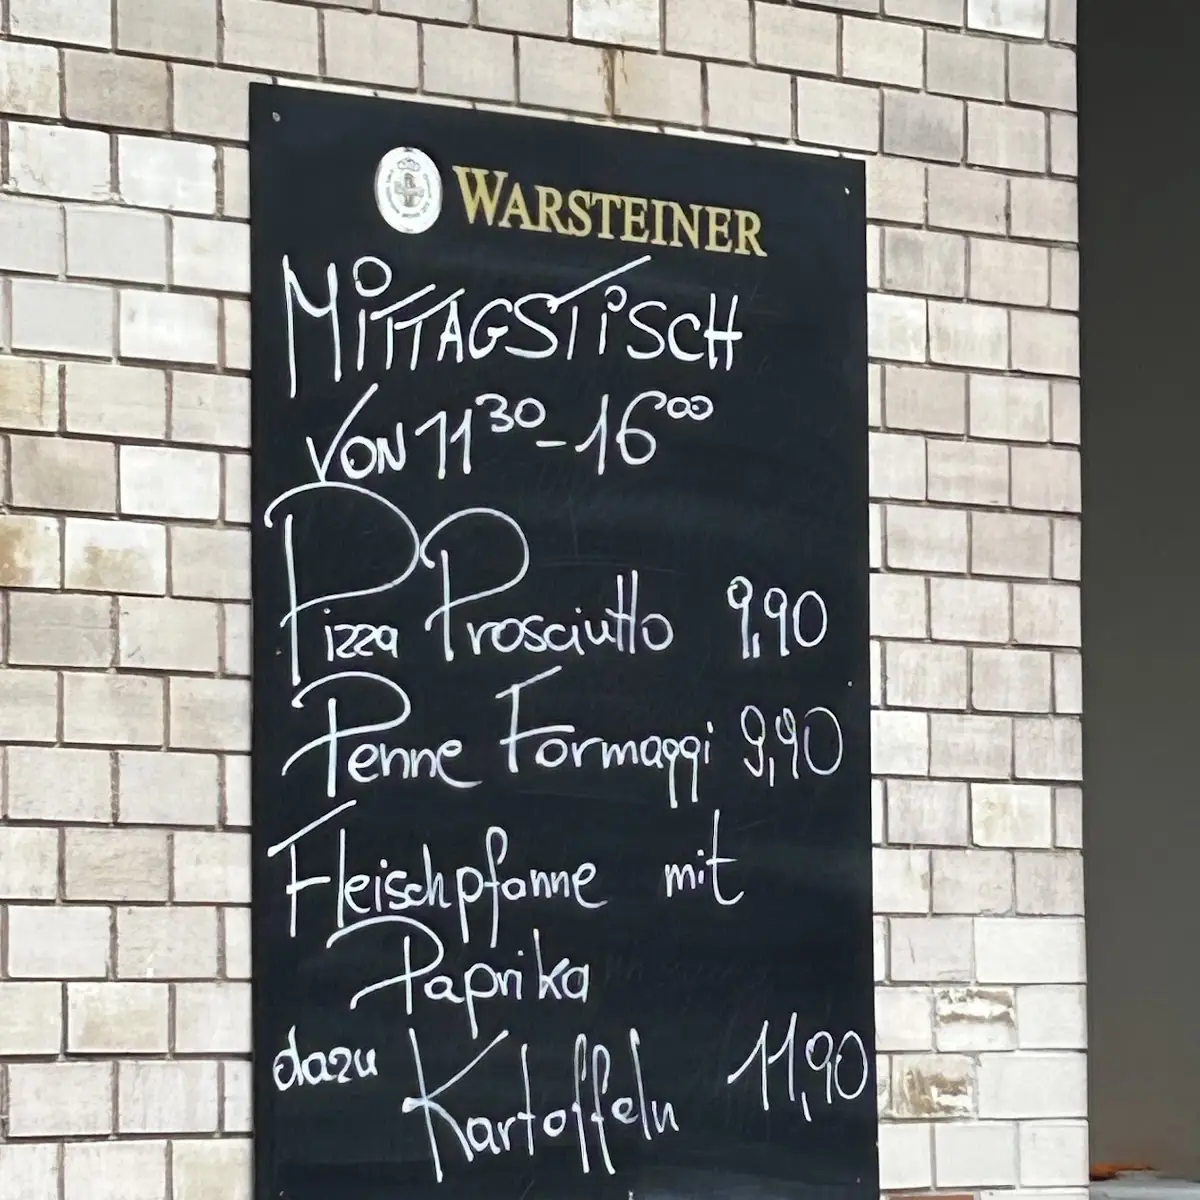 WARSTEINER
MITTAGSTISCH
VON 11³⁰-16⁰⁰
Pizza Prosciutto 9,90
Penne Formaggi 9,90
Fleischpfanne mit
Paprika
dazu Kartoffeln 11,90